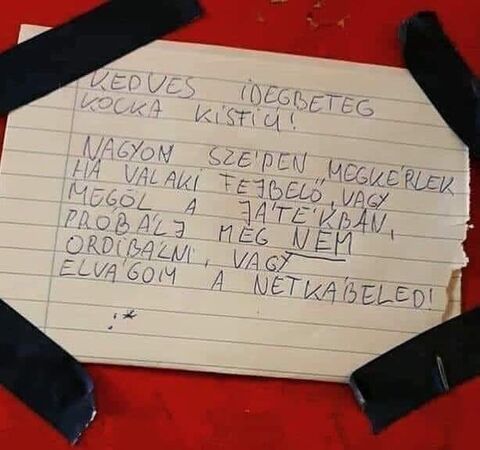 KEDVES IDEGBETEG
KOCKA KISFIÚ!
NAGYON SZÉPEN MEGKÉRLEK
HA VALAKI FEJBELŐ, VAGY
MEGÖL A JÁTÉKBAN,
PRÓBÁLJ MEG NEM
ORDIBÁLNI, VAGY
ELVÁGOM A NETKÁBELED!
:*